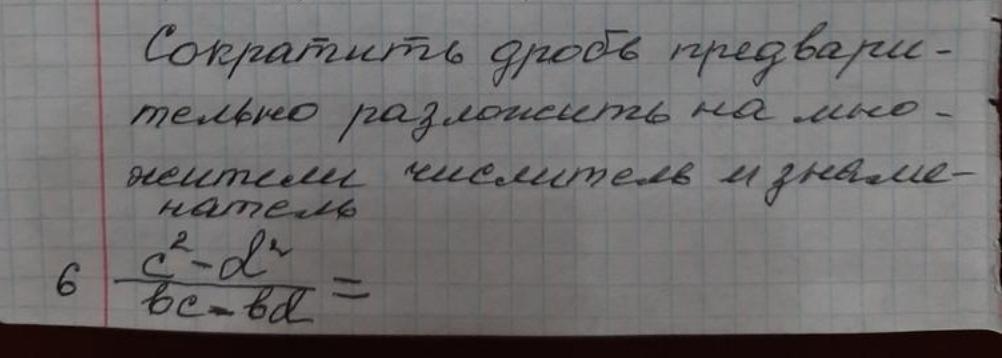 Сократить дробь предвари-
тельно разложить на мно-
жители числитель и знаме-
натель
6 c²-d²
bc-bd =